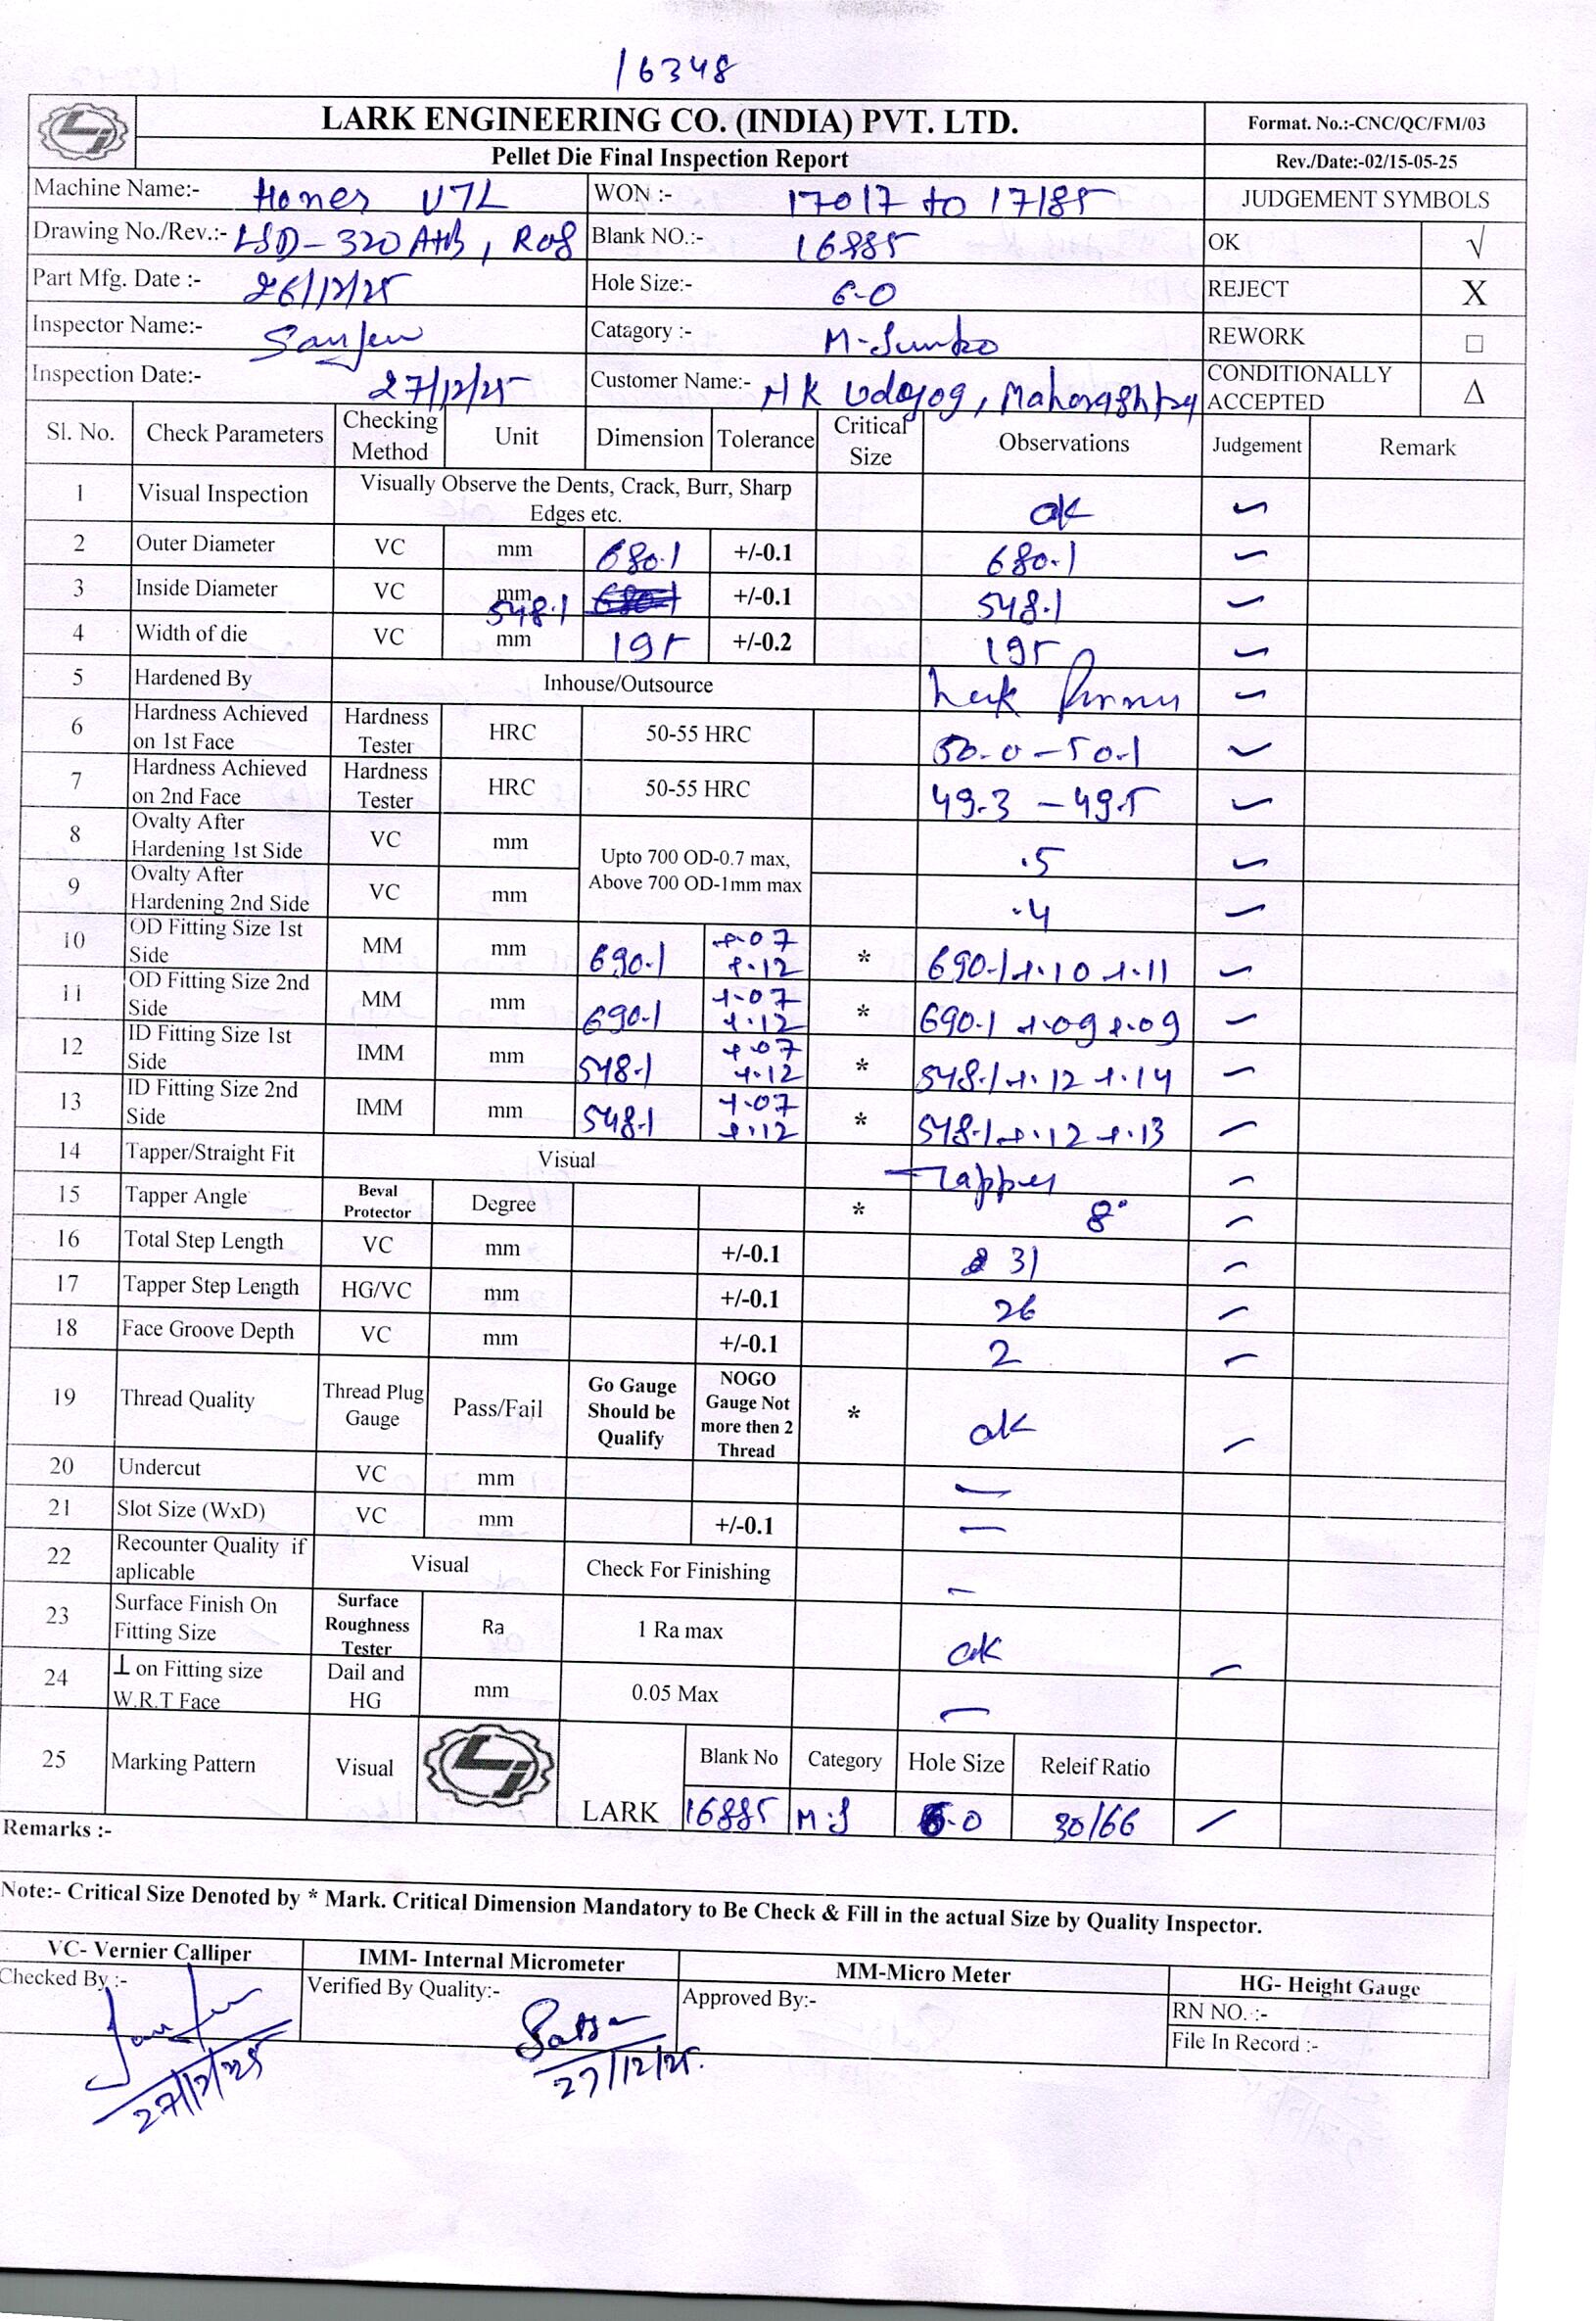 16348
LARK ENGINEERING CO. (INDIA) PVT. LTD.
Format. No.:-CNC/QC/FM/03
Pellet Die Final Inspection Report
Rev./Date:-02/15-05-25
Machine Name:- VTL WON :- 17017 to 17185 JUDGEMENT SYMBOLS
Drawing No./Rev.:- LSD-320 A+B, R08 Blank NO.:- 16885 OK √
Part Mfg. Date :- 26/12/25 Hole Size:- 6.0 REJECT X
Inspector Name:- Catagory :- REWORK □
Inspection Date:- 27/12/25 Customer Name:- H K Udoyog, Maharashtra CONDITIONALLY ACCEPTED Δ
Sl. No. Check Parameters Checking Method Unit Dimension Tolerance Critical Size Observations Judgement Remark
1 Visual Inspection Visually Observe the Dents, Crack, Burr, Sharp Edges etc. ok
2 Outer Diameter VC mm 680.1 +/-0.1 680.1
3 Inside Diameter VC mm 548.1 +/-0.1 548.1
4 Width of die VC mm 195 +/-0.2 195
5 Hardened By Inhouse/Outsource
6 Hardness Achieved on 1st Face Hardness Tester HRC 50-55 HRC 50.0 - 50.1
7 Hardness Achieved on 2nd Face Hardness Tester HRC 50-55 HRC 49.3 - 49.5
8 Ovalty After Hardening 1st Side VC mm Upto 700 OD-0.7 max, Above 700 OD-1mm max .5
9 Ovalty After Hardening 2nd Side VC mm .4
10 OD Fitting Size 1st Side MM mm 690.1 +.07 +.12 * 690.1 +.10 +.11
11 OD Fitting Size 2nd Side MM mm 690.1 +.07 +.12 * 690.1 +.09 +.09
12 ID Fitting Size 1st Side IMM mm 548.1 +.07 +.12 * 548.1 +.12 +.14
13 ID Fitting Size 2nd Side IMM mm 548.1 +.07 +.12 * 548.1 +.12 +.13
14 Tapper/Straight Fit Visual Tapper
15 Tapper Angle Beval Protector Degree * 8°
16 Total Step Length VC mm +/-0.1 31
17 Tapper Step Length HG/VC mm +/-0.1 26
18 Face Groove Depth VC mm +/-0.1 2
19 Thread Quality Thread Plug Gauge Pass/Fail Go Gauge Should be Qualify NOGO Gauge Not more then 2 Thread * ok
20 Undercut VC mm —
21 Slot Size (WxD) VC mm +/-0.1 —
22 Recounter Quality if aplicable Visual Check For Finishing —
23 Surface Finish On Fitting Size Surface Roughness Tester Ra 1 Ra max ok
24 ⊥ on Fitting size W.R.T Face Dail and HG mm 0.05 Max —
25 Marking Pattern Visual LARK Blank No Category Hole Size Releif Ratio
16885 M.S 6.0 30/66
Remarks :-
Note:- Critical Size Denoted by * Mark. Critical Dimension Mandatory to Be Check & Fill in the actual Size by Quality Inspector.
VC- Vernier Calliper IMM- Internal Micrometer MM-Micro Meter HG- Height Gauge
Checked By :- Verified By Quality:- Approved By:- RN NO. :-
File In Record :-
27/12/25 27/12/25.